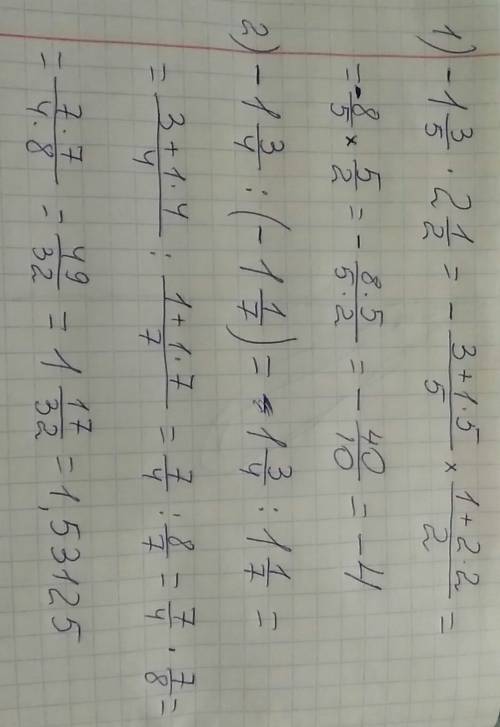 1) -1 3/5 · 2 1/2 = - (3+1·5)/5 × (1+2·2)/2 =
= -8/5 × 5/2 = - (8·5)/(5·2) = - 40/10 = -4
2) -1 3/4 : (-1 1/7) = 1 3/4 : 1 1/7 =
= (3+1·4)/4 : (1+1·7)/7 = 7/4 : 8/7 = 7/4 · 7/8 =
= (7·7)/(4·8) = 49/32 = 1 17/32 = 1,53125